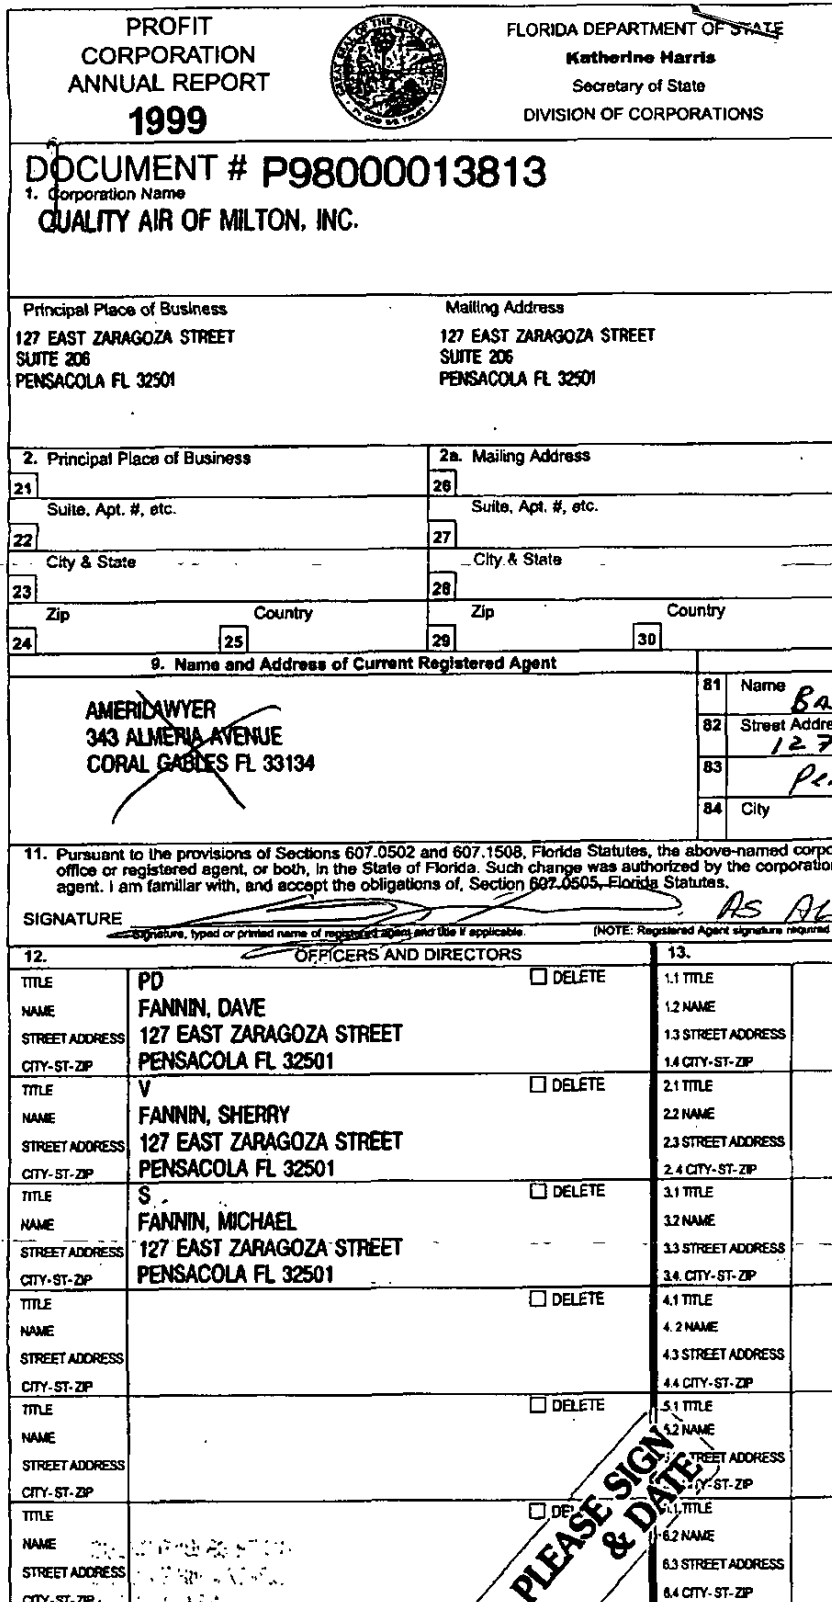 PROFIT
CORPORATION
ANNUAL REPORT
1999
GREAT SEAL OF THE STATE OF FLORIDA
IN GOD WE TRUST
FLORIDA DEPARTMENT OF STATE
Katherine Harris
Secretary of State
DIVISION OF CORPORATIONS
DOCUMENT # P98000013813
1. Corporation Name
QUALITY AIR OF MILTON, INC.
Principal Place of Business
127 EAST ZARAGOZA STREET
SUITE 206
PENSACOLA FL 32501
Mailing Address
127 EAST ZARAGOZA STREET
SUITE 206
PENSACOLA FL 32501
2. Principal Place of Business
21
Suite, Apt. #, etc.
22
City & State
23
Zip
24
Country
25
2a. Mailing Address
26
Suite, Apt. #, etc.
27
City & State
28
Zip
29
Country
30
9. Name and Address of Current Registered Agent
AMERILAWYER
343 ALMERIA AVENUE
CORAL GABLES FL 33134
81 Name
82 Street Addre
127
83
84 City
11. Pursuant to the provisions of Sections 607.0502 and 607.1508, Florida Statutes, the above-named corpo
office or registered agent, or both, in the State of Florida. Such change was authorized by the corporation
agent. I am familiar with, and accept the obligations of, Section 607.0505, Florida Statutes.
SIGNATURE
AS
Signature, typed or printed name of registered agent and title if applicable.
(NOTE: Registered Agent signature required
12. OFFICERS AND DIRECTORS
13.
TITLE PD DELETE
NAME FANNIN, DAVE
STREET ADDRESS 127 EAST ZARAGOZA STREET
CITY-ST-ZIP PENSACOLA FL 32501
1.1 TITLE
1.2 NAME
1.3 STREET ADDRESS
1.4 CITY-ST-ZIP
TITLE V DELETE
NAME FANNIN, SHERRY
STREET ADDRESS 127 EAST ZARAGOZA STREET
CITY-ST-ZIP PENSACOLA FL 32501
2.1 TITLE
2.2 NAME
2.3 STREET ADDRESS
2.4 CITY-ST-ZIP
TITLE S DELETE
NAME FANNIN, MICHAEL
STREET ADDRESS 127 EAST ZARAGOZA STREET
CITY-ST-ZIP PENSACOLA FL 32501
3.1 TITLE
3.2 NAME
3.3 STREET ADDRESS
3.4. CITY-ST-ZIP
TITLE DELETE
NAME
STREET ADDRESS
CITY-ST-ZIP
4.1 TITLE
4.2 NAME
4.3 STREET ADDRESS
4.4 CITY-ST-ZIP
TITLE DELETE
NAME
STREET ADDRESS
CITY-ST-ZIP
5.1 TITLE
5.2 NAME
TREET ADDRESS
Y-ST-ZIP
TITLE DE
NAME
STREET ADDRESS
CITY-ST-ZIP
TITLE
6.2 NAME
6.3 STREET ADDRESS
6.4 CITY-ST-ZIP
PLEASE SIGN
& DATE